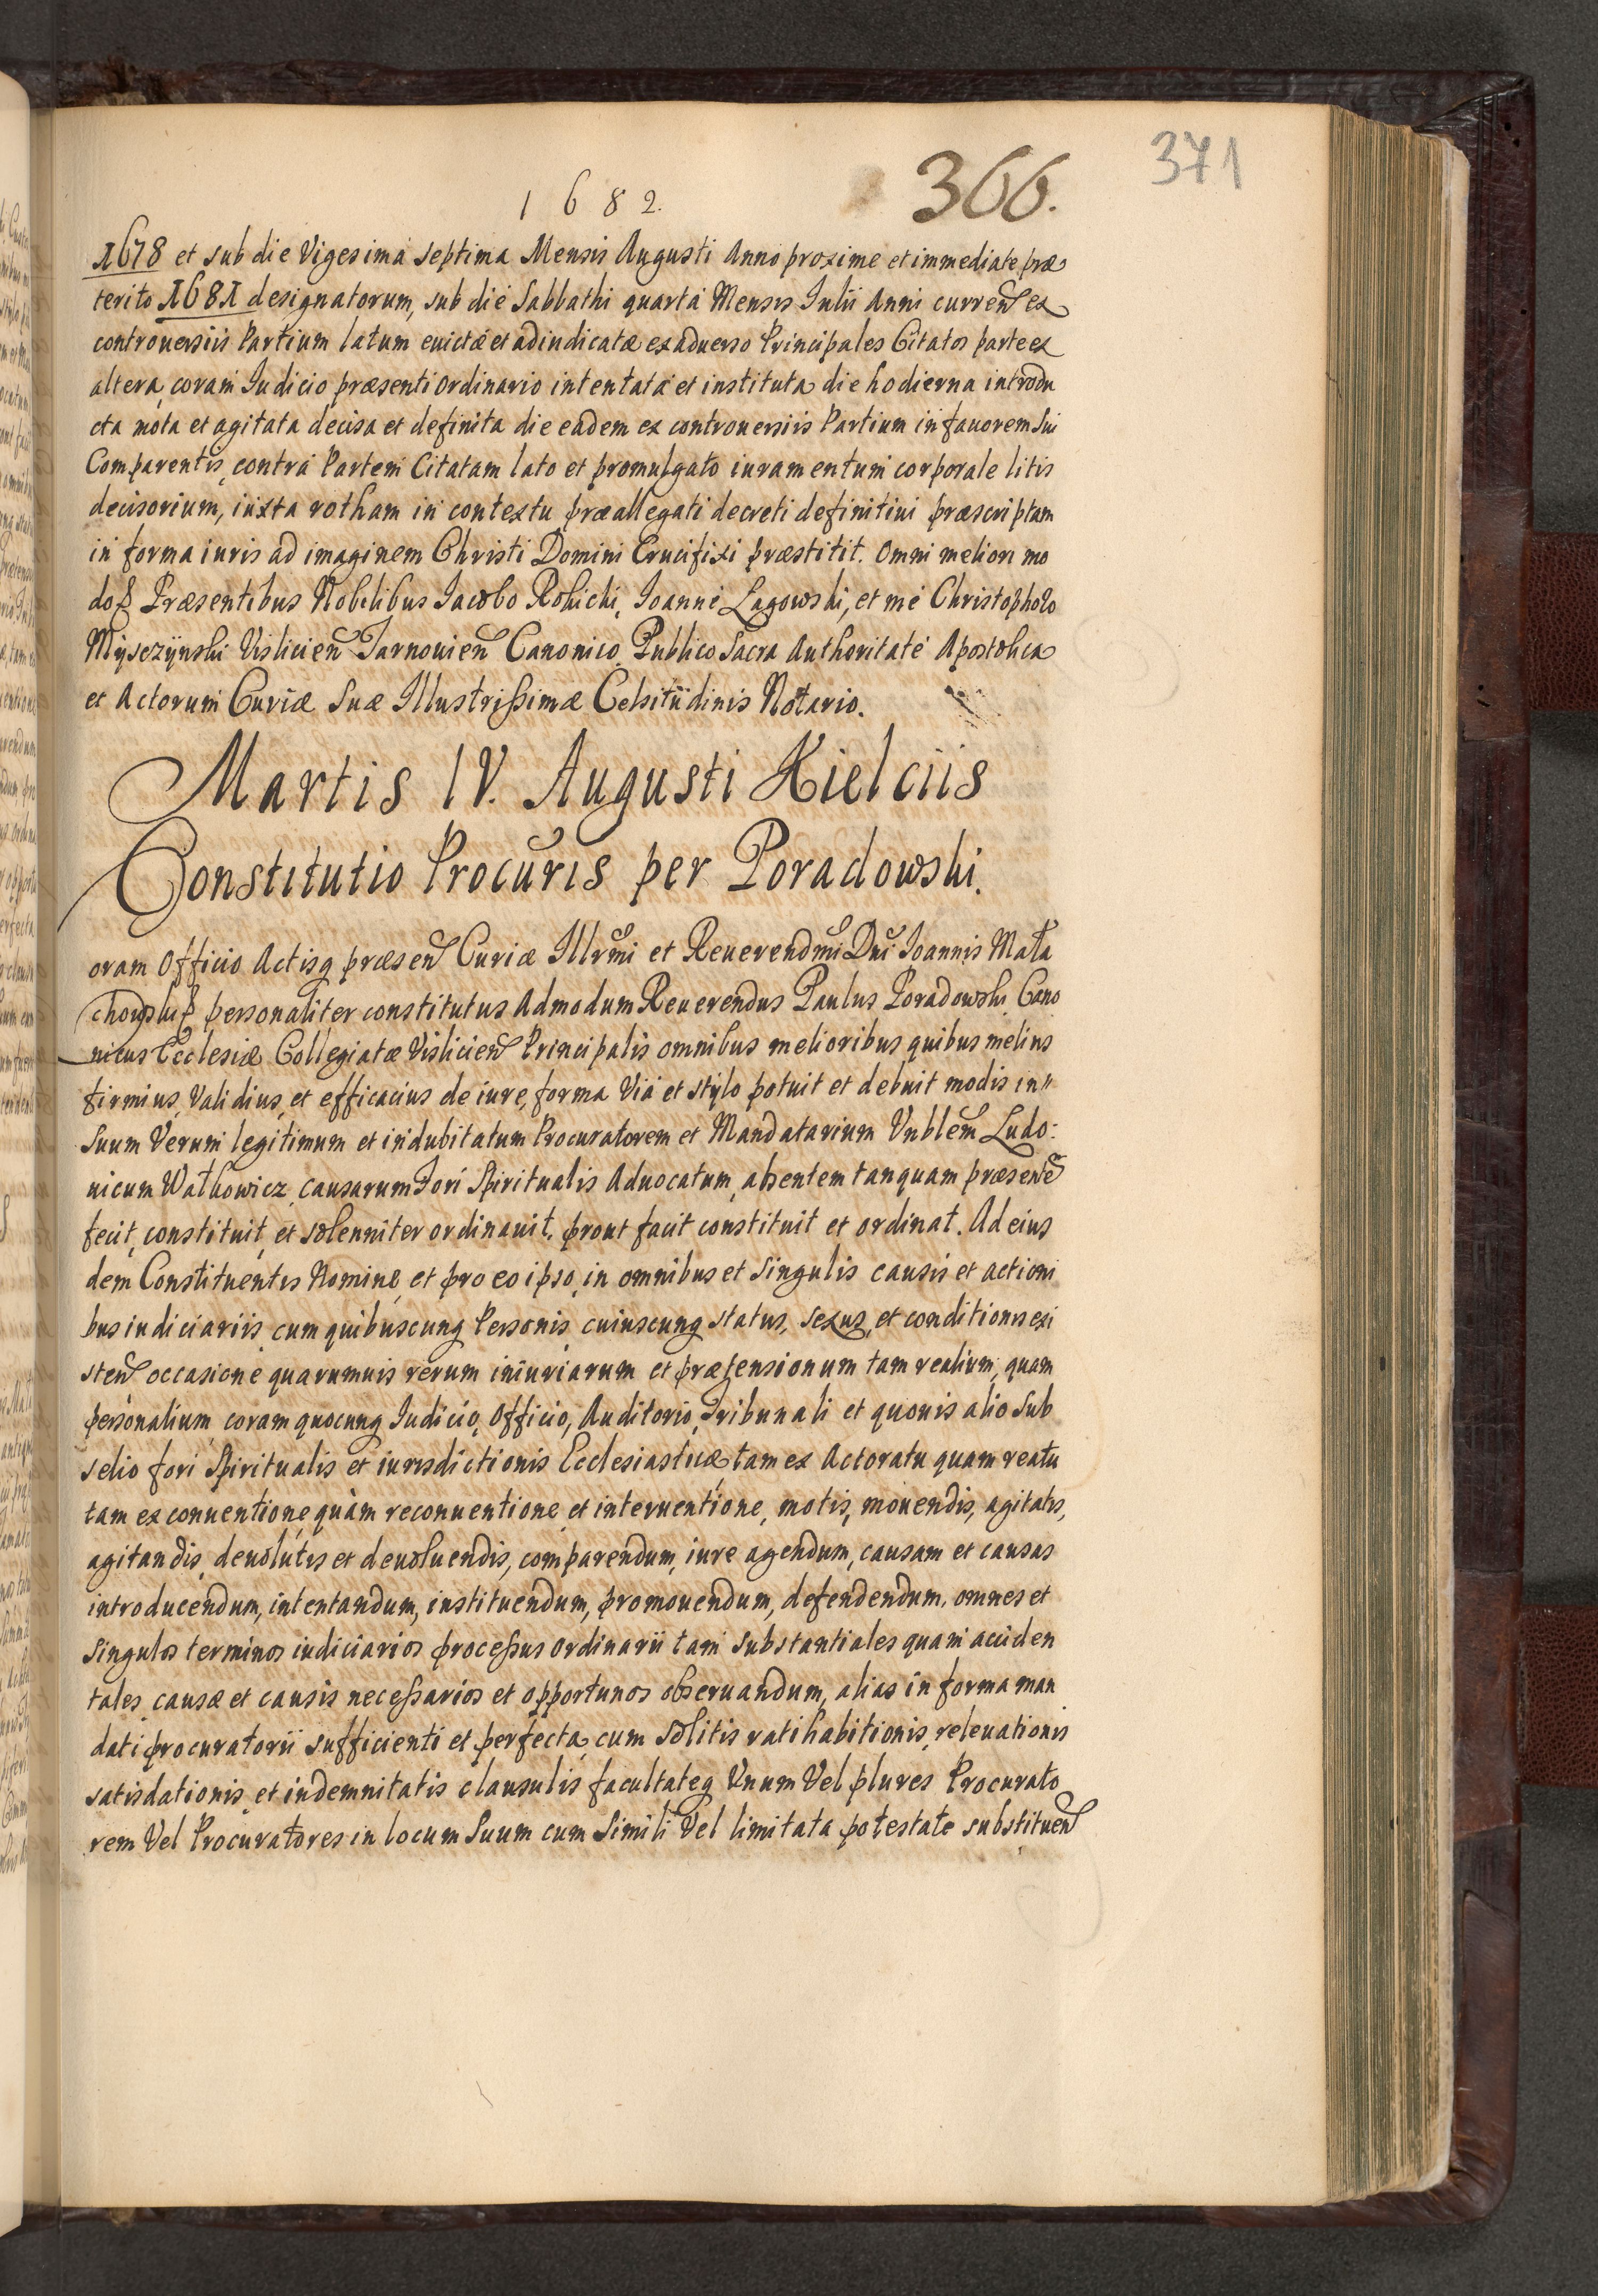 1682.
366.
371
1678 et sub die Vigesima Septima Mensis Augusti Anno proxime et immediate præ
terito 1681 designatorum, sub die Sabbathi quarta Mensis Iulii Anni curren ex
controuersiis Partium latum euictæ et adiudicatæ ex aduerso Principales Citatos parte ex
altera, coram Iudicio præsenti ordinario intentata et instituta die hodierna introdu
cta mota et agitata decisa et definita die eadem ex controuersiis Partium in fauorem Sui
Comparentis, contra Partem Citatam lato et promulgato iuramentum corporale litis
decisorium, iuxta rotham in contextu præallegati decreti definitiui præscriptam
in forma iuris ad imaginem Christi Domini Crucifixi præstitit. Omni meliori mo
do ß Præsentibus Nobilibus Iacobo Rokicki, Ioanne Lagowski, et me Christophoro
Mysczÿnski Vislicien Tarnouien Canonico, Publico Sacra Authoritate Apostolica
et Actorum Curiæ Suæ Illustrißimæ Celsitudinis Notario.
Martis IV. Augusti Kielciis
Constitutio Procuris per Poradowski.
Coram Officio Actisq præsen Curiæ Illrmi et Reuerendmi Dni Ioannis Mała
chowski ß personaliter constitutus Admodum Reuerendus Paulus Poradowski Cano
nicus Ecclesiæ Collegiatæ Vislicien Principalis omnibus melioribus quibus melius
firmius, Validius, et efficacius de iure, forma Via et stylo potuit et debuit modis in"
Suum Verum legitimum et indubitatum Procuratorem et Mandatarium Vnblem Ludo:
uicum Wałkowicz, causarum Fori Spiritualis Aduocatum, absentem tanquam præsente
fecit, constituit, et solenniter ordinauit, prout facit constituit et ordinat. Ad eius
dem Constituentis Nomine, et pro eo ipso, in omnibus et Singulis causis et actioni
bus iudiciariis, cum quibuscunq Personis, cuiuscunq status, sexus, et conditionis exi
sten occasione quarumuis rerum iniuriarum et prætensionum tam realium, quam
personalium, coram quocunq Iudicio, Officio, Auditorio, Tribunali et quouis alio Sub
selio fori Spiritualis et iurisdictionis Ecclesiasticæ, tam ex Actoratu quam reatu
tam ex conuentione quàm reconuentione, et interuentione, motis, mouendis, agitatis,
agitandis, deuolutis et deuoluendis, comparendum, iure agendum, causam et causas
introducendum, intentandum, instituendum, promouendum, defendendum, omnes et
Singulos terminos iudiciarios proceßus ordinarii tam Substantiales quam acciden
tales, causæ et causis neceßarios et opportunos obseruandum, alias in forma man
dati procuratorii sufficienti et perfecta, cum solitis ratihabitionis, releuationis
satisdationis, et indemnitatis clausulis facultateq Vnum Vel plures Procurato
rem Vel Procuratores in locum Suum cum Simili Vel limitata potestate substituen